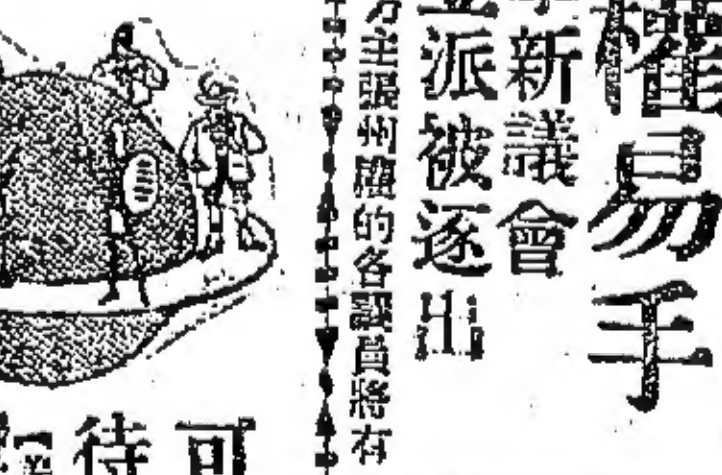 權易手
新議會
派被逐出
方主張州權的各議員將有
待可